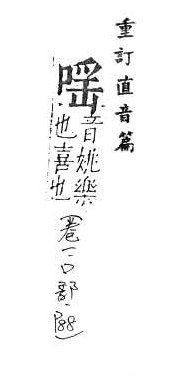 重訂直音篇
嗂
音姚樂
也喜也
(卷一·口部·P88)